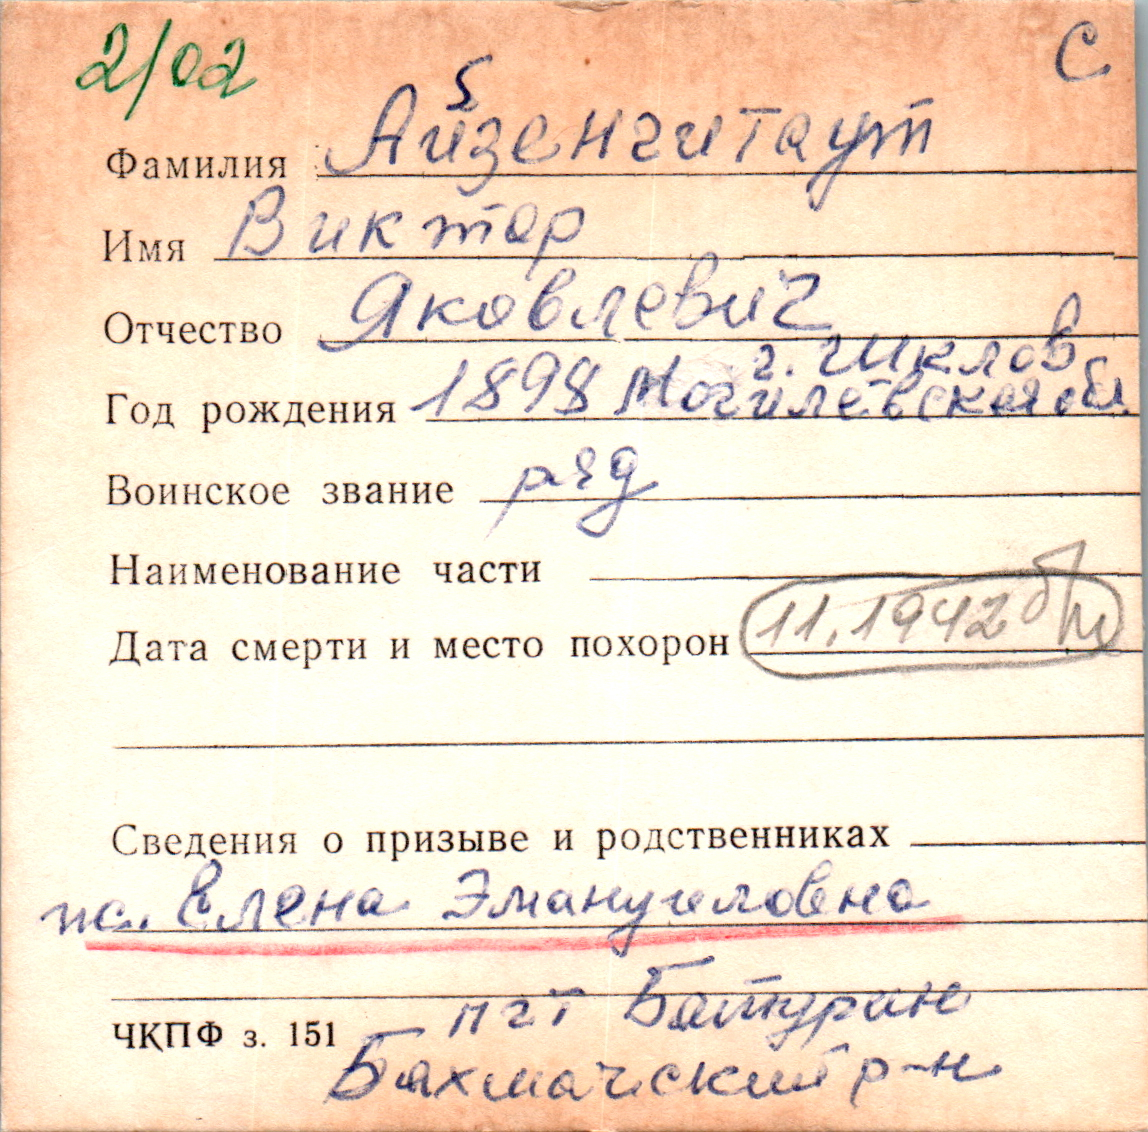 2/02
С
Фамилия Айзенгитаут
Имя Виктор
Отчество Яковлевич
г. Шклов
Год рождения 1898 Могилёвская обл.
Воинское звание ряд
Наименование части
Дата смерти и место похорон 11.1942 б/м
Сведения о призыве и родственниках
ж. Елена Эмануиловна
пгт Батурин
ЧКПФ з. 151
Бахмачский р-н